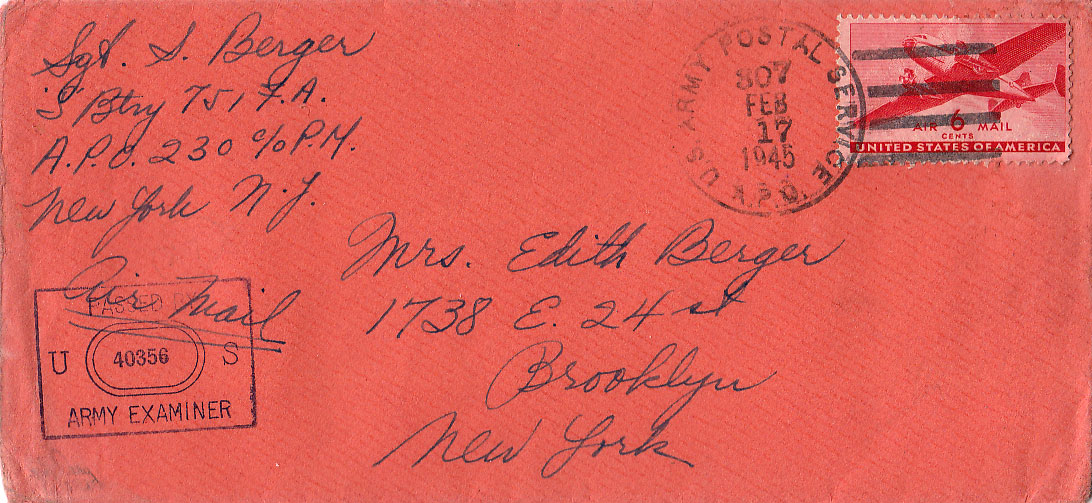 Sgt. S. Berger
"S" Btry 751 F.A.
A.P.O. 230 c/o P.M.
New York N.Y.
Air Mail
PASSED
U 40356 S
ARMY EXAMINER
U S ARMY POSTAL SERVICE
A.P.O.
307
FEB
17
1945
AIR 6 MAIL
CENTS
UNITED STATES OF AMERICA
Mrs. Edith Berger
1738 E. 24 st
Brooklyn
New York